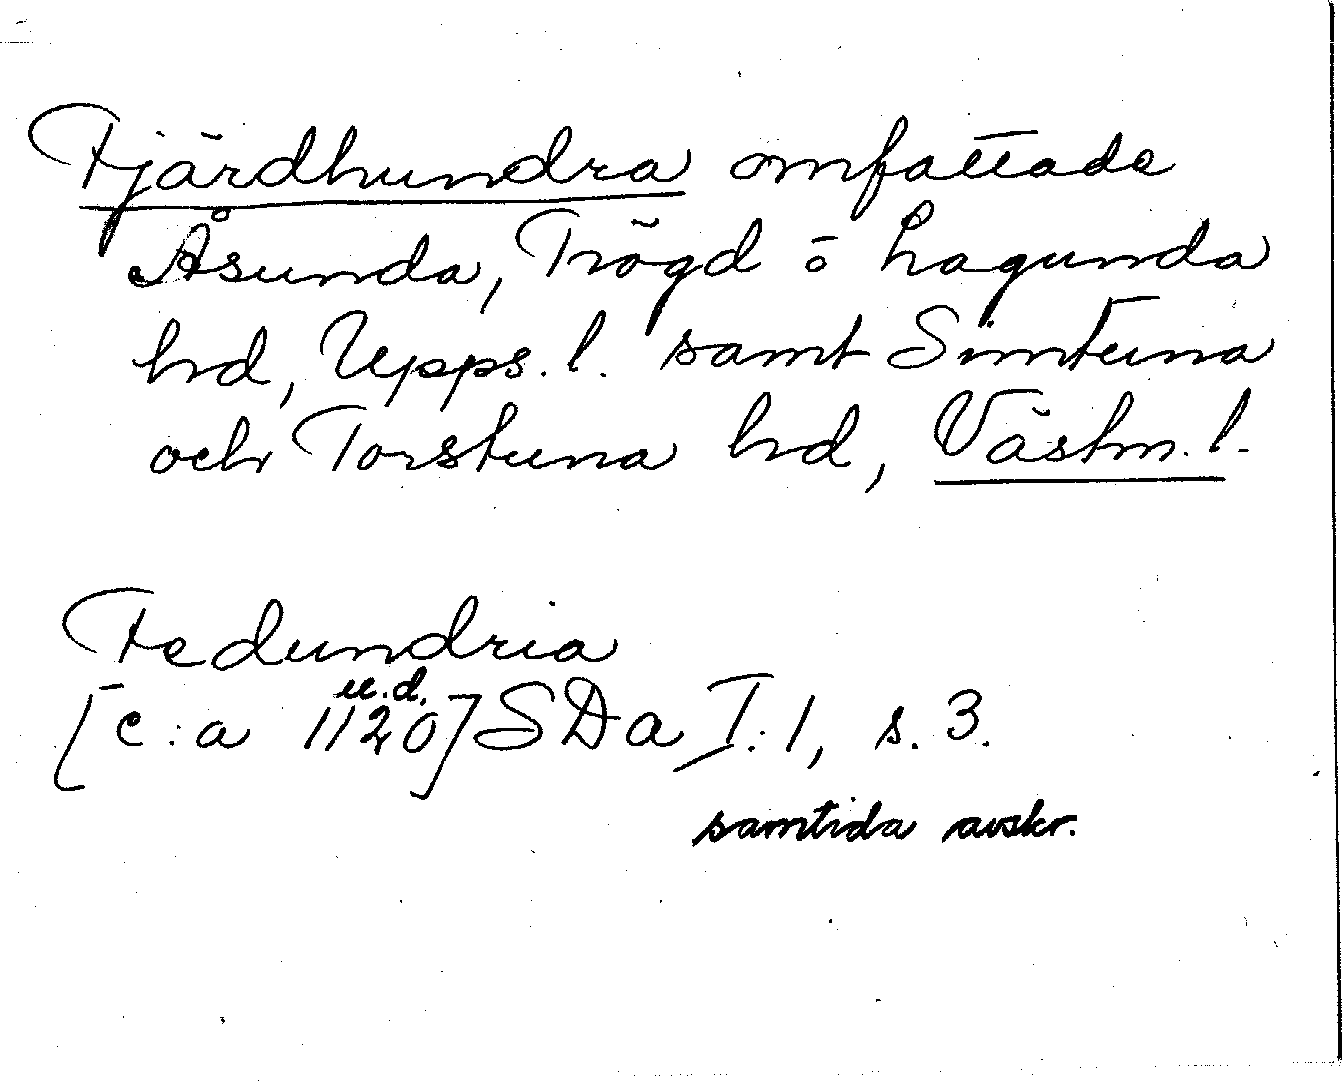 Fjärdhundra omfattade
Åsunda, Trögd o Lagunda
hd, Upps. l. samt Simtuna
och Torstuna hd, Västm. l.
Fedundria
u.d.
[c:a 1120] SDa I:1, s. 3.
samtida avskr.